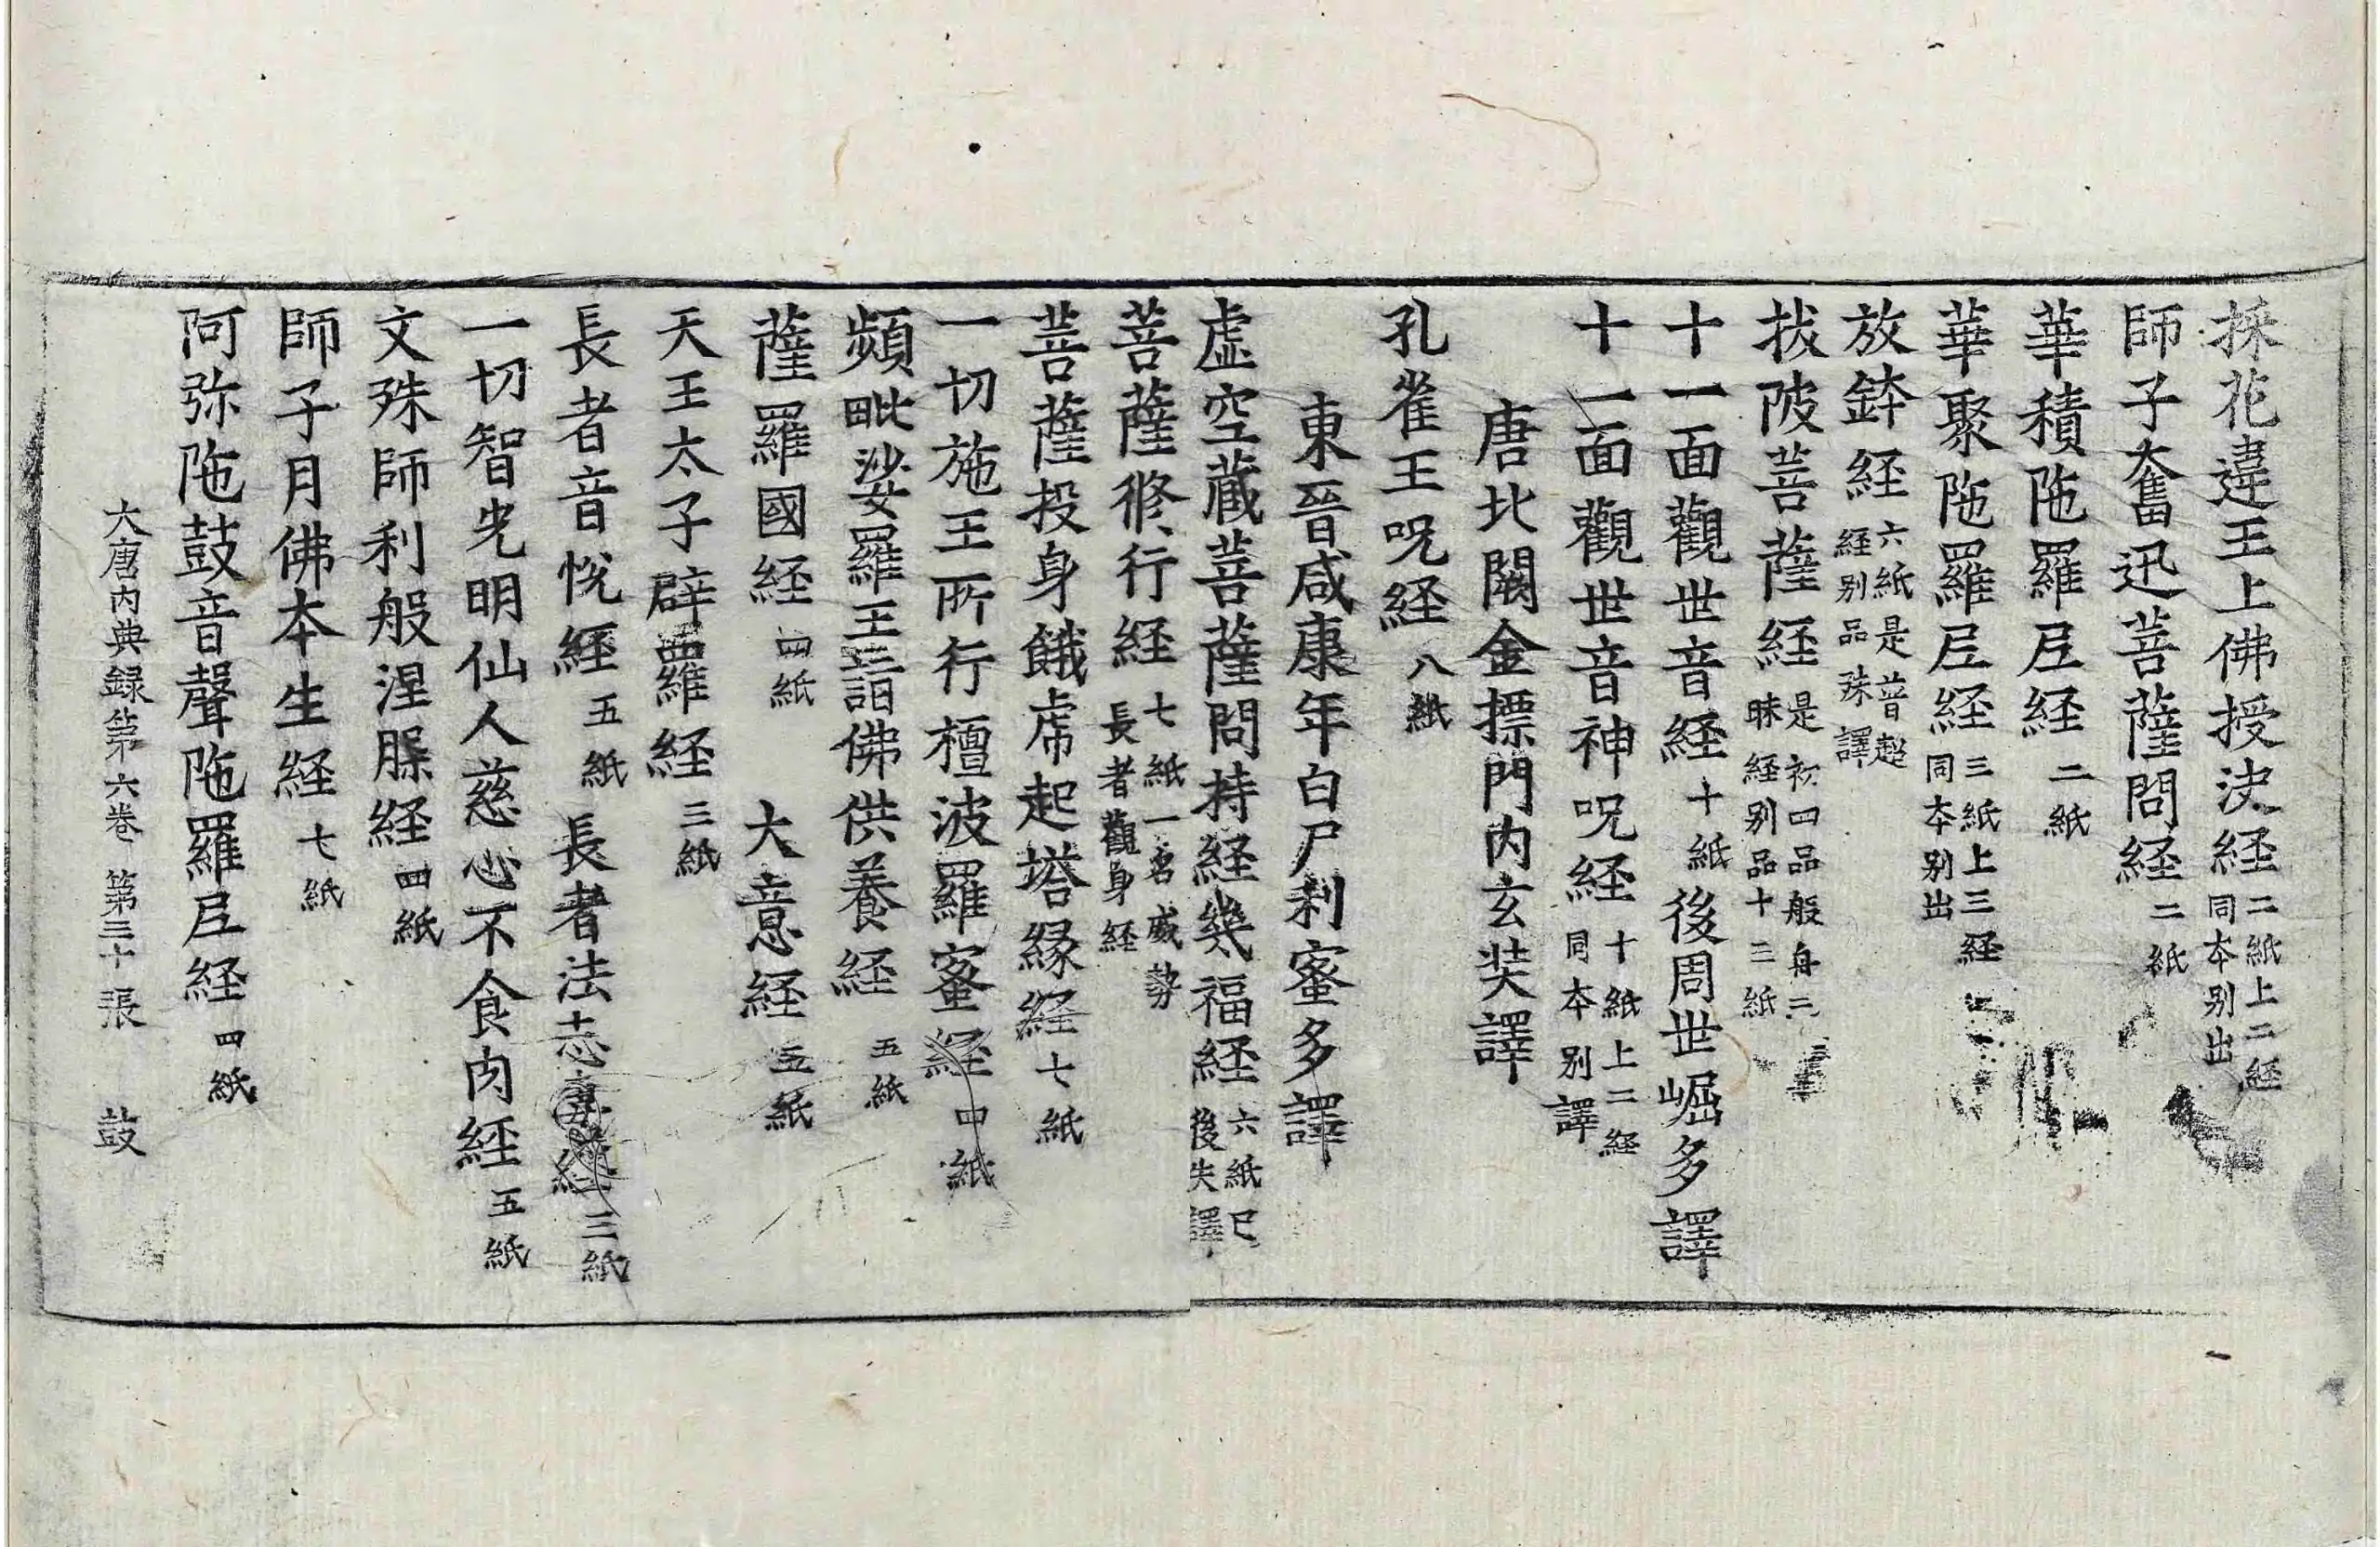 採花違王上佛授決経二紙上二経同本别出
師子奮迅菩薩問経二紙
華積陁羅𡰱経二紙
華聚陁羅𡰱経三紙上三経同本别出
放鉢経六紙是普超経别品殊譯
拔陂菩薩経是初四品般舟三昧経别品十三紙
十一面觀世音経十紙後周世崛多譯
十一面觀世音神呪経十紙上二経同本别譯
唐北闕金摽門内玄奘譯
孔雀王呪経八紙
東晉咸康年白尸利蜜多譯
虛空藏菩薩問持経幾福経六紙已後失譯
菩薩修行経七紙一名威勢長者觀身経
菩薩投身餓虎起塔縁経七紙
一切施王所行檀波羅蜜経四紙
頻毗娑羅王詣佛供養経五紙
薩羅國経四紙 大意経五紙
天王太子辟羅経三紙
長者音悅経五紙 長者法志妻経三紙
一切智光明仙人慈心不食肉経五紙
文殊師利般涅槃経四紙
師子月佛本生経七紙
阿弥陁鼓音聲陁羅𡰱経四紙
大唐内典録第六卷 第三十張 鼓